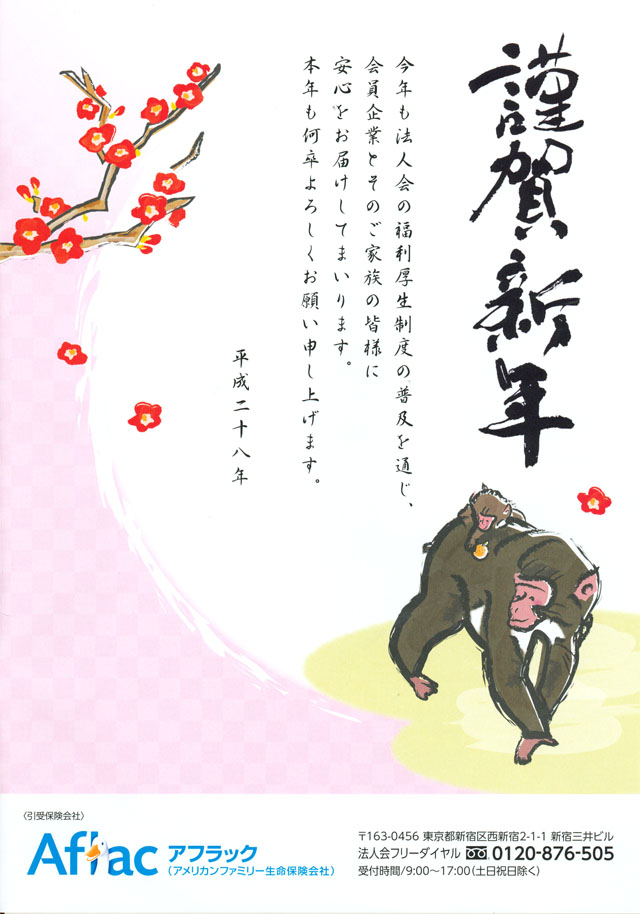 謹賀新年
今年も法人会の福利厚生制度の普及を通じ、
会員企業とそのご家族の皆様に
安心をお届けしてまいります。
本年も何卒よろしくお願い申し上げます。
平成二十八年
〈引受保険会社〉
Aflac アフラック
(アメリカンファミリー生命保険会社)
〒163-0456 東京都新宿区西新宿2-1-1 新宿三井ビル
法人会フリーダイヤル 0120-876-505
受付時間/9:00~17:00(土日祝日除く)